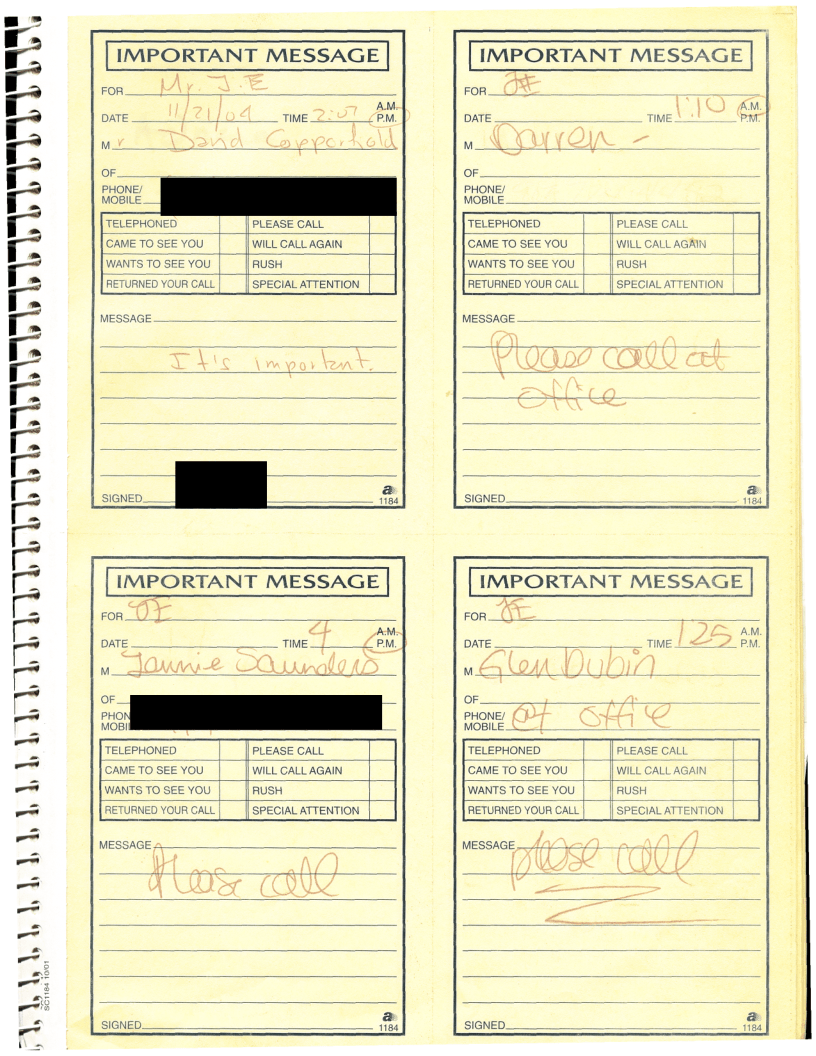 IMPORTANT MESSAGE
FOR Mr. J.E
DATE 11/21/04 TIME 2:07 A.M. P.M.
Mr David Copperfield
OF
PHONE/
MOBILE
TELEPHONED PLEASE CALL
CAME TO SEE YOU WILL CALL AGAIN
WANTS TO SEE YOU RUSH
RETURNED YOUR CALL SPECIAL ATTENTION
MESSAGE
It's important.
SIGNED
a
1184
IMPORTANT MESSAGE
FOR JE
DATE TIME 1:10 A.M. P.M.
M Darren -
OF
PHONE/
MOBILE
TELEPHONED PLEASE CALL
CAME TO SEE YOU WILL CALL AGAIN
WANTS TO SEE YOU RUSH
RETURNED YOUR CALL SPECIAL ATTENTION
MESSAGE
Please call at
office
SIGNED
a
1184
IMPORTANT MESSAGE
FOR JE
DATE TIME 4 A.M. P.M.
M Jannie Saunders
OF
PHON
MOBI
TELEPHONED PLEASE CALL
CAME TO SEE YOU WILL CALL AGAIN
WANTS TO SEE YOU RUSH
RETURNED YOUR CALL SPECIAL ATTENTION
MESSAGE
Please call
SIGNED
a
1184
IMPORTANT MESSAGE
FOR JE
DATE TIME 125 A.M. P.M.
M Glen Dubin
OF
PHONE/
MOBILE at office
TELEPHONED PLEASE CALL
CAME TO SEE YOU WILL CALL AGAIN
WANTS TO SEE YOU RUSH
RETURNED YOUR CALL SPECIAL ATTENTION
MESSAGE please call
SIGNED
a
1184
SC1184 10/01